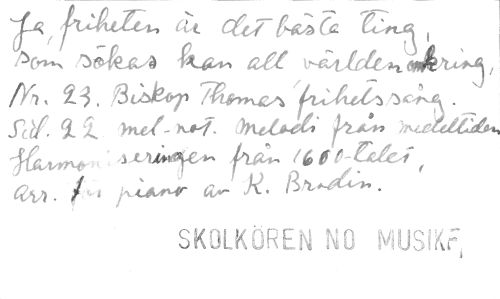 Ja, friheten är det bästa ting,
som sökas kan all världen omkring,
Nr. 23. Biskop Thomas' frihetssång.
Sid. 22 mel-not. Melodi från medeltiden
Harmoniseringen från 1600-talet,
arr. för piano av K. Brodin.
SKOLKÖREN NO MUSIKF,